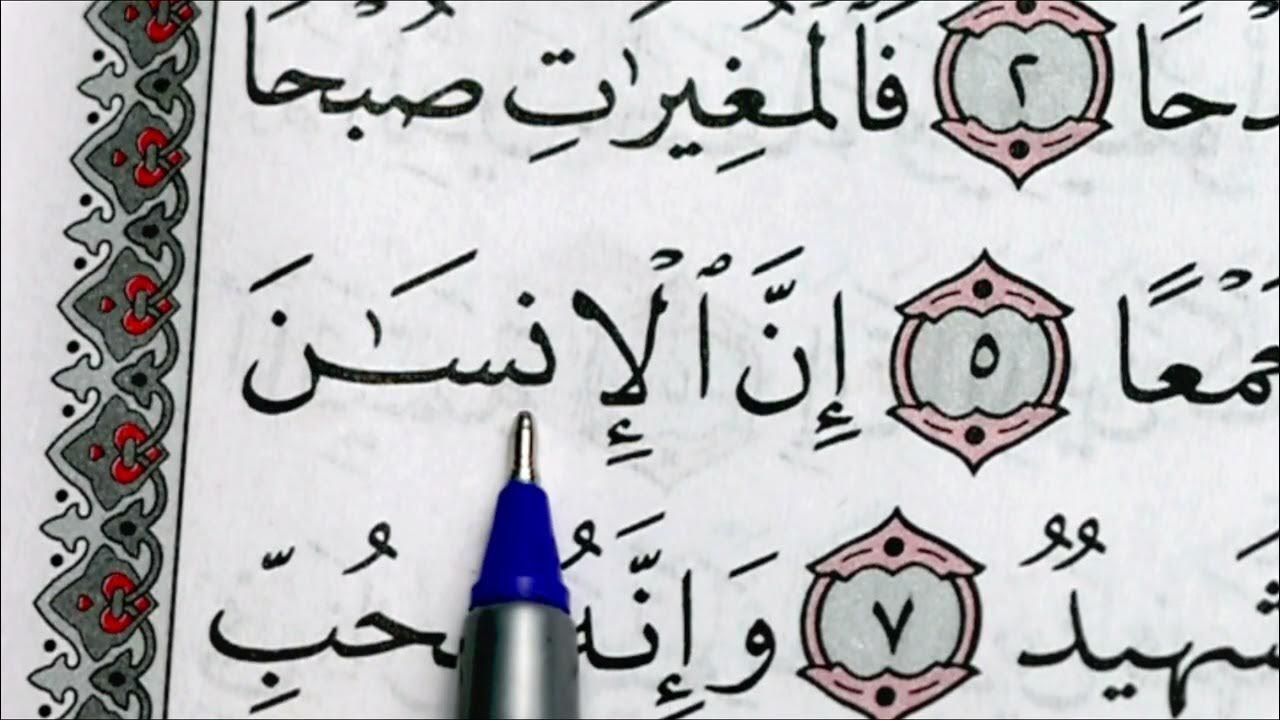 دْحًا ٢ فَٱلْمُغِيرَٰتِ صُبْحًا
مْعًا ٥ إِنَّ ٱلْإِنسَٰنَ
شَهِيدٌ ٧ وَإِنَّهُۥ حُبِّ